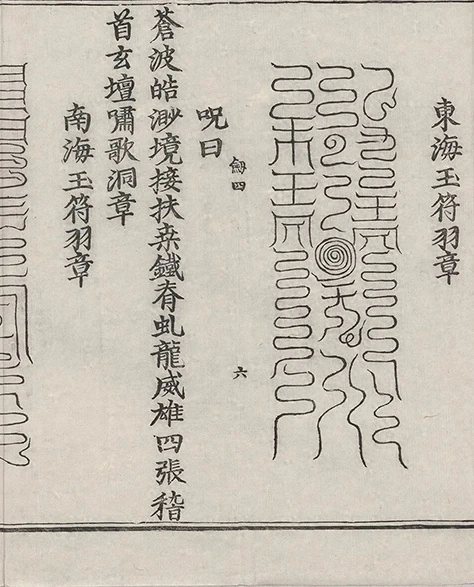 東海玉符羽章
劒四
六
呪曰
蒼波皓渺境接扶桒鐵脊虬龍威雄四張稽
首玄壇嘯歌洞章
南海玉符羽章